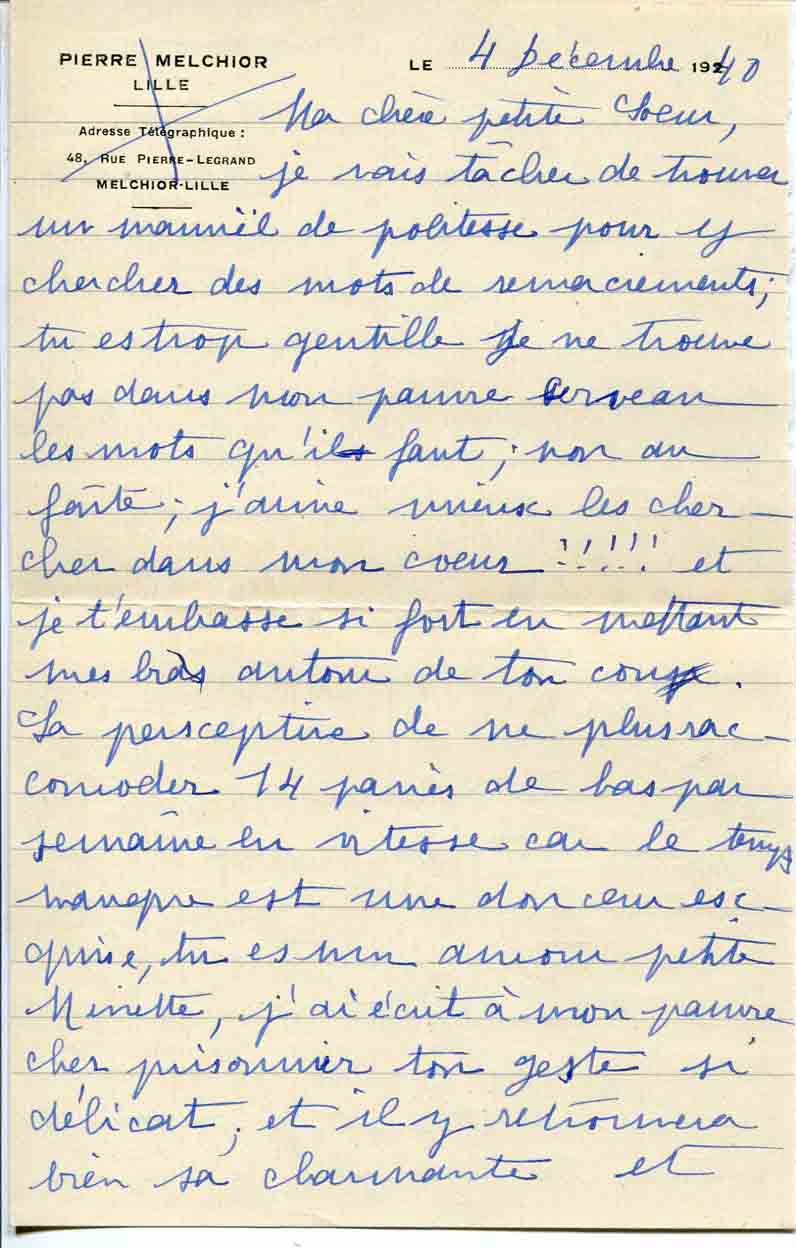 PIERRE MELCHIOR
LILLE
Adresse Télégraphique :
48, RUE PIERRE-LEGRAND
MELCHIOR-LILLE
LE 4 Décembre 1940
Ma chère petite Soeur,
je vais tâcher de trouver
un manuel de politesse pour y
chercher des mots de remerciements;
tu es trop gentille je ne trouve
pas dans mon pauvre cerveau
les mots qu'il faut; non au
faite; j'aime mieux les cher-
cher dans mon coeur !!!!! et
je t'embrasse si fort en mettant
mes bras autour de ton cou.
La persceptive de ne plus rac-
comoder 14 paires de bas par
semaine en vitesse car le temps
manque est une douceur esc-
quise, tu es un amour petite
Minette, j'ai écrit à mon pauvre
cher prisonnier ton geste si
délicat, et il y retrouvera
bien sa charmante et